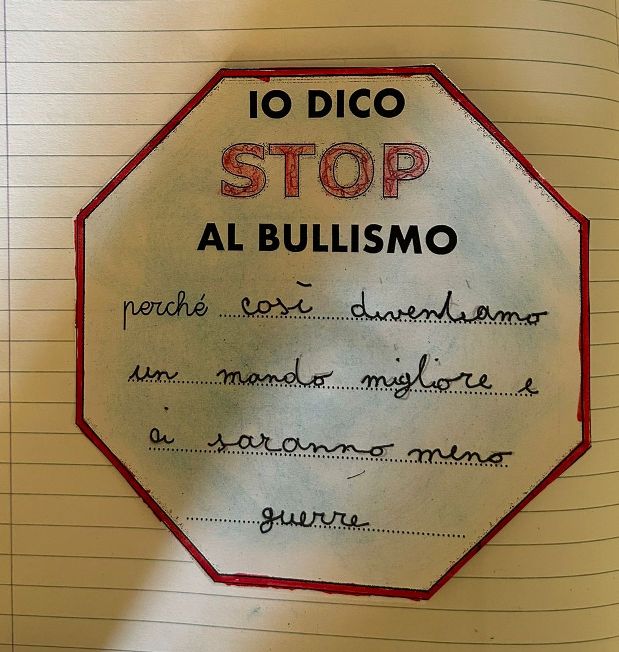 IO DICO
STOP
AL BULLISMO
perché così diventiamo
un mondo migliore e
ci saranno meno
guerre